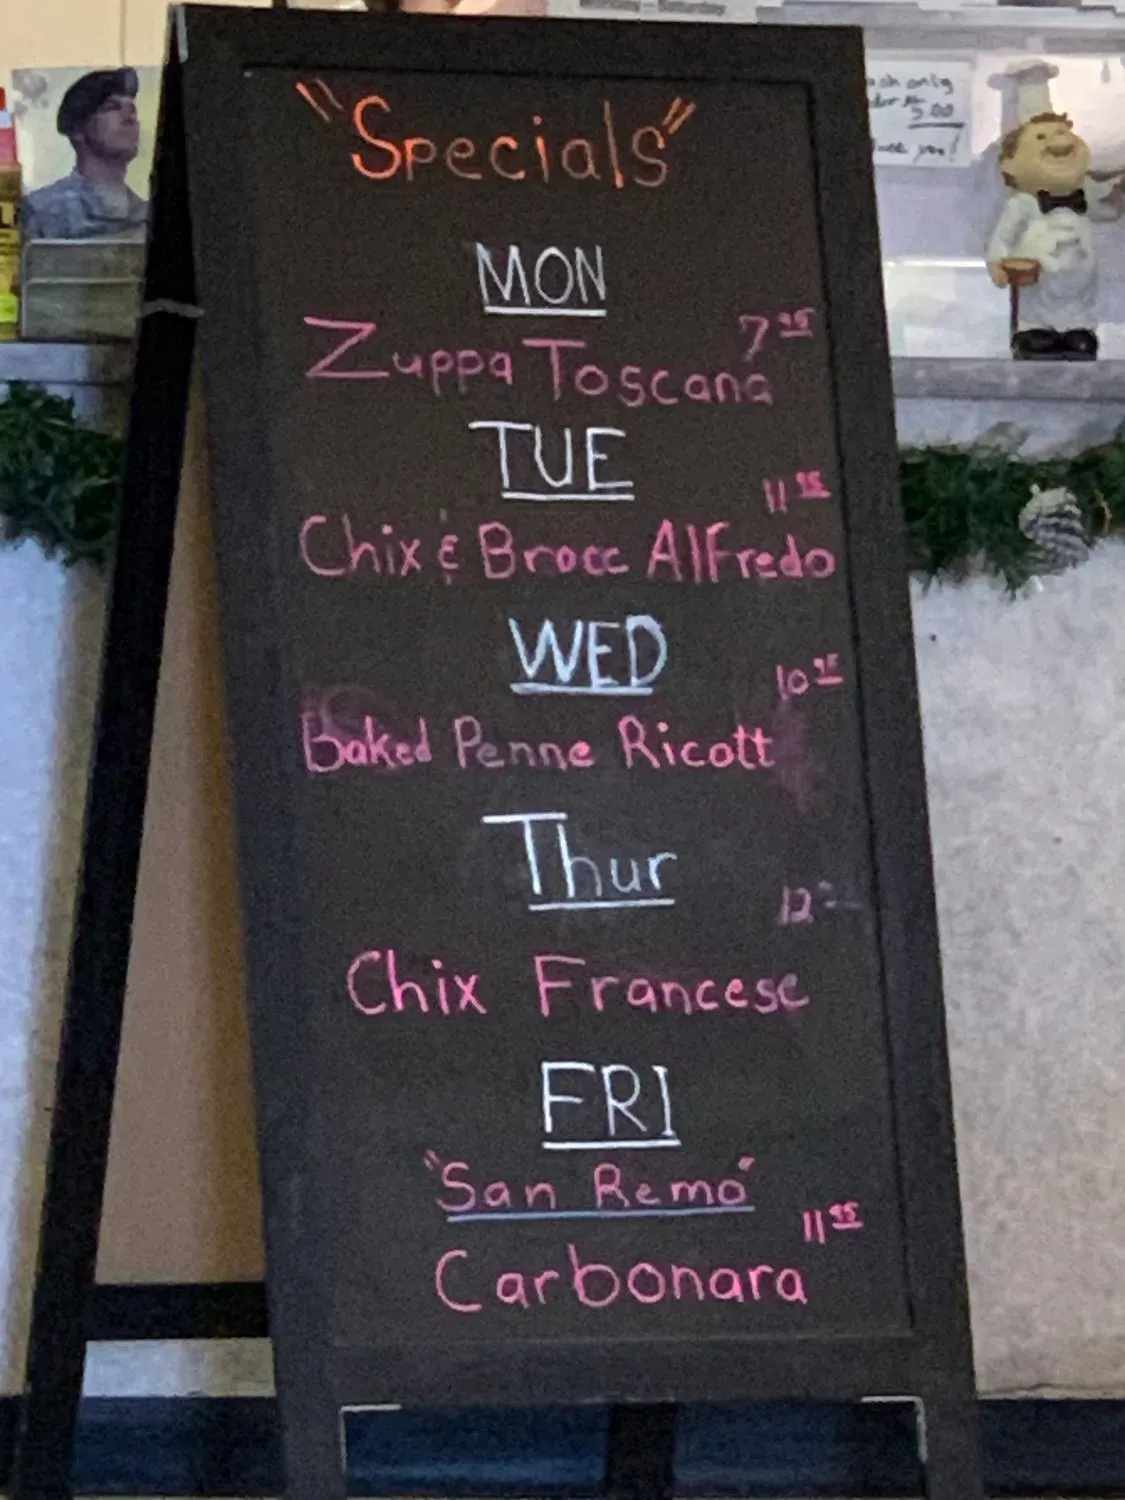 "Specials"
MON
7 95
Zuppa Toscana
TUE
11 95
Chix & Brocc Alfredo
WED
10 95
Baked Penne Ricott
Thur
12
Chix Francese
FRI
"San Remo"
11 95
Carbonara
only
5.00